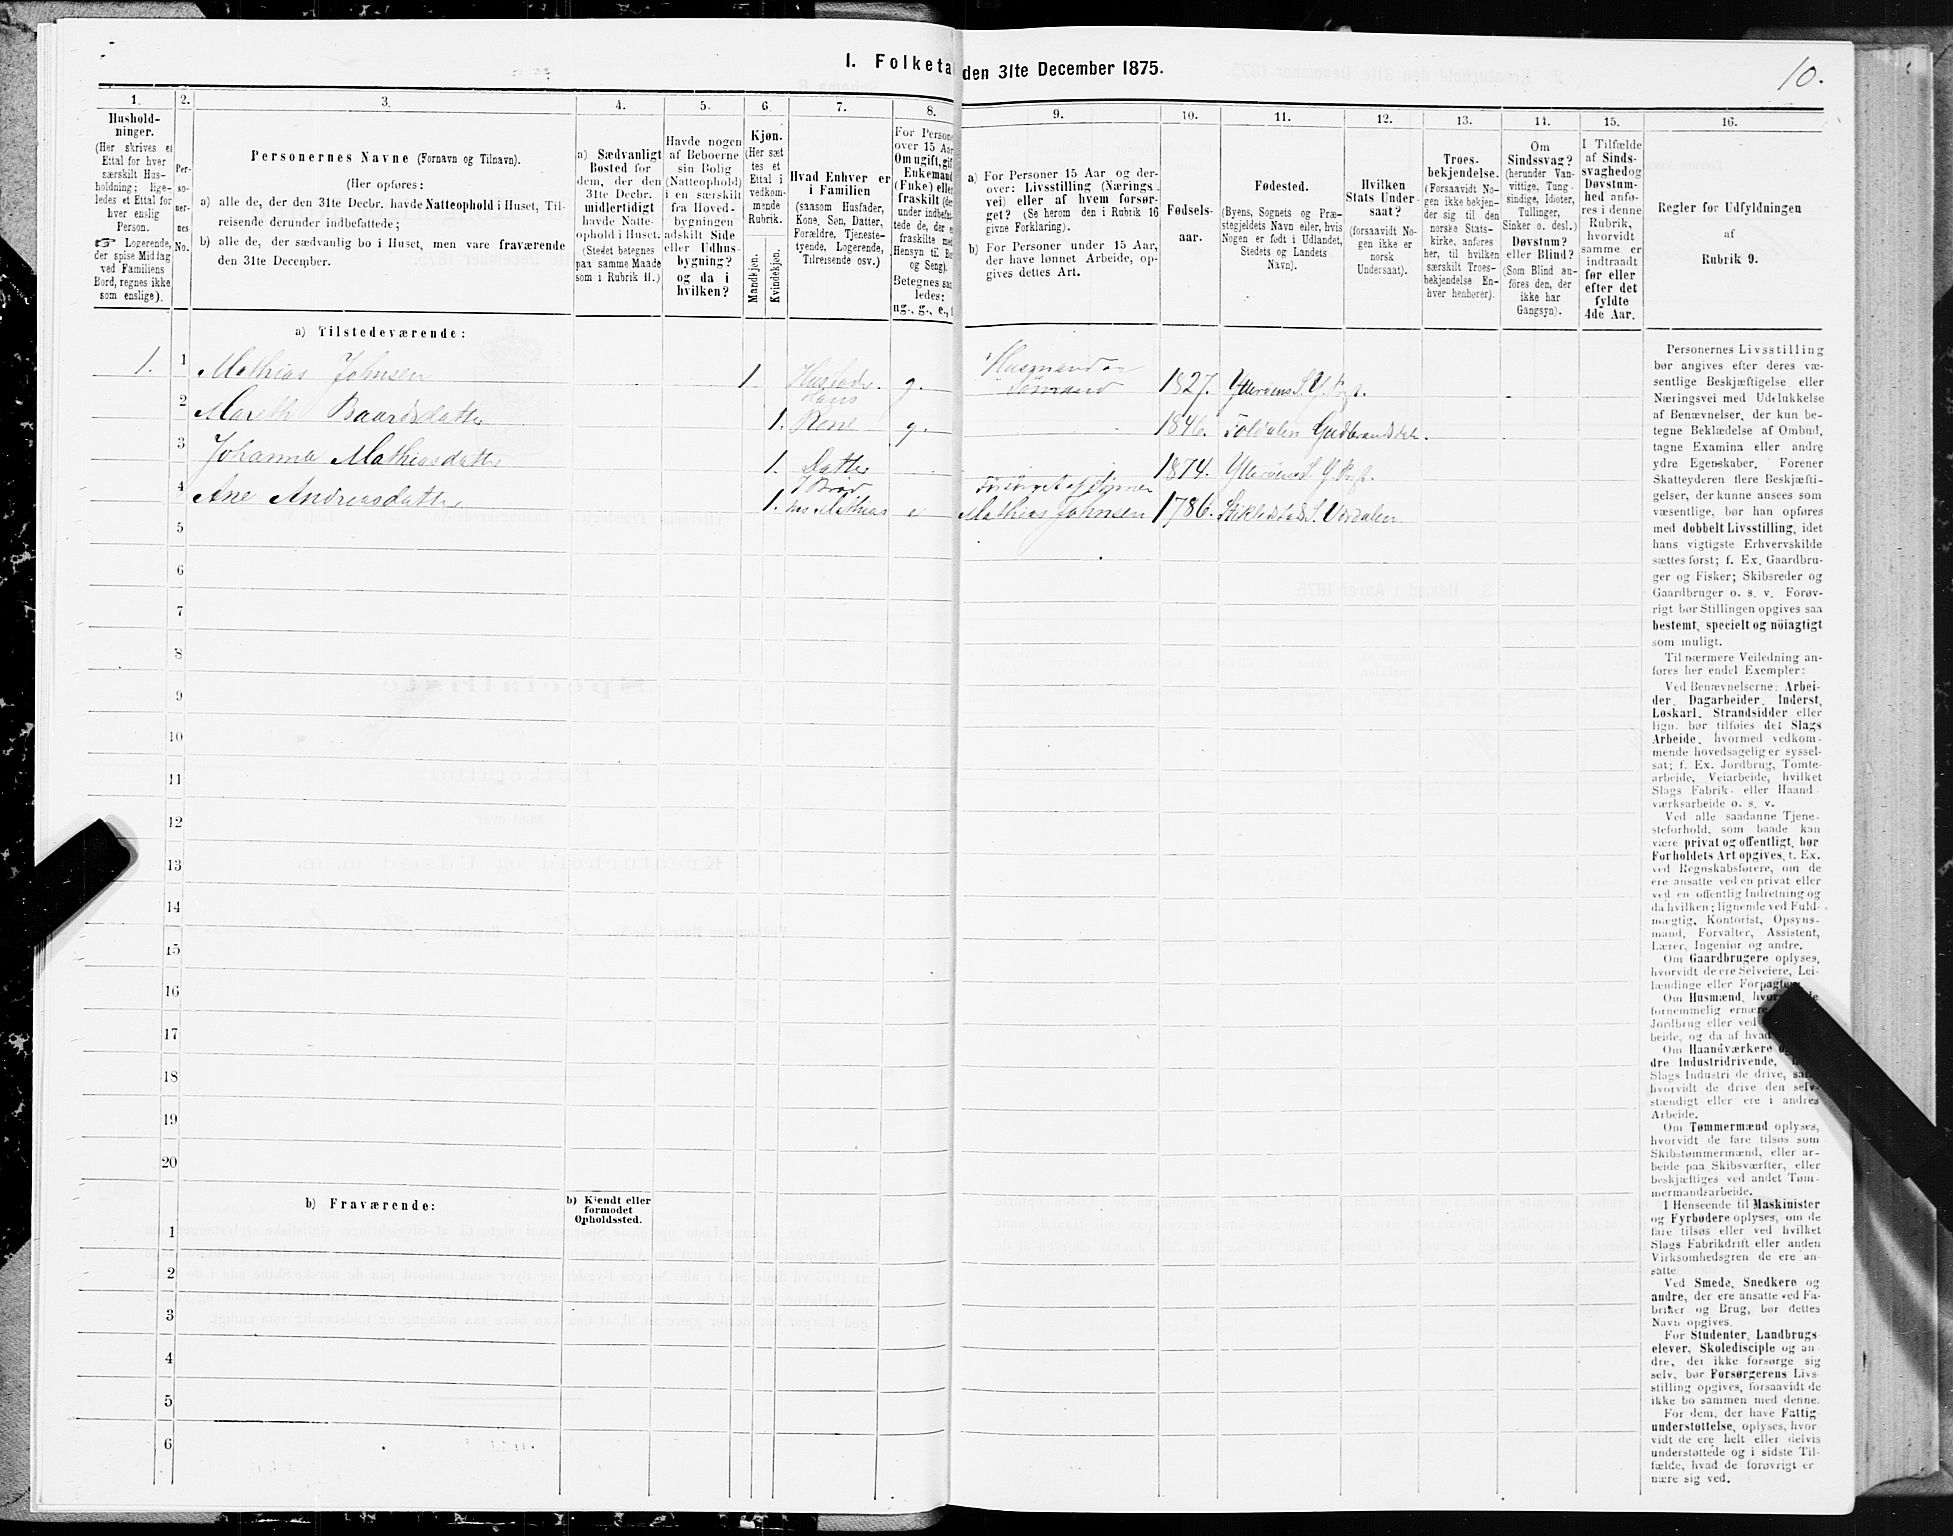 I. Folketa
den 31te December 1875.
10.
1.
2.
3.
4.
5.
6.
7.
8.
9.
10.
11.
12.
13.
14.
15.
16.
Hushold-
ninger.
(Her skrives et
Ettal for hver
særskilt Hus-
holdning; lige-
ledes et Ettal for
hver enslig
Person.
☞ Logerende,
der spise Middag
ved Familiens
Bord, regnes ikke
som enslige).
Per-
so-
ner-
nes
No.
Personernes Navne (Fornavn og Tilnavn).
(Her opføres:
a) alle de, der den 31te Decbr. havde Natteophold i Huset, Til-
reisende derunder indbefattede;
b) alle de, der sædvanlig bo i Huset, men vare fraværende
den 31te December.
a) Sædvanligt
Bosted for
dem, der den
31te Decbr.
midlertidigt
havde Natte-
ophold i Huset.
(Stedet betegnes
paa samme Maade
som i Rubrik 11.)
Havde nogen
af Beboerne
sin Bolig
(Natteophold)
i en særskilt
fra Hoved-
bygningen
adskilt Side
eller Udhus-
bygning?
og da i
hvilken?
Kjøn.
(Her sæt
tes et
Ettal i
vedkom-
mende
Rubrik.
Mandkjøn.
Kvindekjøn.
Hvad Enhver er
i Familien
(saasom Husfader,
Kone, Søn, Datter,
Forældre, Tjeneste-
tyende, Logerende,
Tilreisende osv.)
For Persone
over 15 Aar
Om ugift, gif
Enkemand
(Enke) elle
fraskilt (der
under indbefat-
tede de, der e
fraskilte med
Hensyn til Bo
og Seng).
Betegnes saa
ledes:
ug., g., e., f
a) For Personer 15 Aar og der-
over: Livsstilling (Nærings-
vei) eller af hvem forsør-
get? (Se herom den i Rubrik 16
givne Forklaring).
b) For Personer under 15 Aar,
der have lønnet Arbeide, op-
gives dettes Art.
Fødsels-
aar.
Fødested.
(Byens, Sognets og Præ-
stegjeldets Navn eller, hvis
Nogen er født i Udlandet,
Stedets og Landets
Navn).
Hvilken
Stats Under-
saat?
(forsaavidt No-
gen ikke er
norsk
Undersaat).
Troes-
bekjendelse.
(Forsaavidt No-
gen ikke bekjen-
der sig til den
norske Stats-
kirke, anføres
her, til hvilken
særskilt Troes-
bekjendelse En-
hver henhører).
Om
Sindssvag?
(herunder Van-
vittige, Tung-
sindige, Idioter,
Tullinger,
Sinker o. desl.)
Døvstum?
eller Blind?
(Som Blind an-
føres den, der
ikke har
Gangsyn).
I Tilfælde
af Sinds-
svaghed og
Døvstum-
hed anfø-
res i denne
Rubrik,
hvorvidt
samme er
indtraadt
før eller
efter det
fyldte
4de Aar.
Regler for Udfyldningen
af
Rubrik 9.
a) Tilstedeværende:
1. 1 Mathias Johnsen 1 g. Husmand 1827.
2 Mareth Baardsdatter 1. Kone g. 1846.
3 Johanna Mathiasdatter 1. Datter 1874.
4 Ane Andreasdatter 1. Mathias Mathias Johnsen 1786.
5
6
7
8
9
10
11
12
13
14
15
16
17
18
19
20
b) Fraværende:
b) Kjendt eller
formodet
Opholdssted.
1
2
3
4
5
6
Personernes Livsstilling
bør angives efter deres væ-
sentlige Beskjæftigelse eller
Næringsvei med Udelukkelse
af Benævnelser, der kun be-
tegne Beklædelse af Ombud,
tagne Examina eller andre
ydre Egenskaber. Forener
Skatteyderen flere Beskjæfti-
gelser, der kunne ansees som
væsentlige, bør han opføres
med dobbelt Livsstilling, idet
hans vigtigste Erhvervskilde
sættes først; f. Ex. Gaardbru-
ger og Fisker; Skibsreder og
Gaardbruger o. s. v. Forøv-
rigt bør Stillingen opgives saa
bestemt, specielt og nöiagtigt
som muligt.
Til nærmere Veiledning an-
føres her endel Exempler:
Ved Benævnelserne: Arbei-
der, Dagarbeider, Inderst,
Løskarl, Strandsidder eller
lign. bør tilføies det Slags
Arbeide, hvormed vedkom-
mende hovedsagelig er syssel-
sat; f. Ex. Jordbrug, Tomte-
arbeide, Veiarbeide, hvilket
Slags Fabrik- eller Haand
værksarbeide o. s. v.
Ved alle saadanne Tjene-
steforhold, som baade kan
være privat og offentligt, bør
Forholdets Art opgives, t. Ex.
ved Regnskabsførere, om de
ere ansatte ved en privat eller
ved en offentlig Indretning og
da hvilken; lignende ved Fuld-
mægtig, Kontorist, Opsyns-
mand, Forvalter, Assistent,
Lærer, Ingeniør og andre.
Om Gaardbrugere oplyses,
hvorvidt de ere Selveiere, Lei-
lændinge eller Forpagtere
Om Husmænd,
fornemmelig
Jordbrug eller ved
beide, og da af hvad
Om Haandværkere
dre Industridrivende,
Slags Industri de drive,
hvorvidt de drive den selv-
stændigt eller ere i andres
Arbeide.
Om Tømmermænd oplyses,
hvorvidt de fare tilsøs som
Skibstømmermænd, eller ar-
beide paa Skibsværfter, eller
beskjæftiges ved andet Tøm-
mermandsarbeide.
I Henseende til Maskinister
og Fyrbødere oplyses, om de
fare tilsøs eller ved hvilket
Slags Fabrikdrift eller anden
Virksomhedsgren de ere an-
satte
Ved Smede, Snedkere og
andre, der ere ansatte ved Fa-
briker og Brug, bør dettes
Navn opgives.
For Studenter, Landbrugs-
elever, Skoledisciple og an-
dre, der ikke forsørge sig
selv, bør Forsørgerens Livs-
stilling opgives, forsaavidt de
ikke bo sammen med denne.
For dem, der have Fattig-
understøttelse, oplyses, hvor-
vidt de ere helt eller delvis
understøttede og i sidste Til-
fælde, hvad de forøvrigt er
nære sig ved.